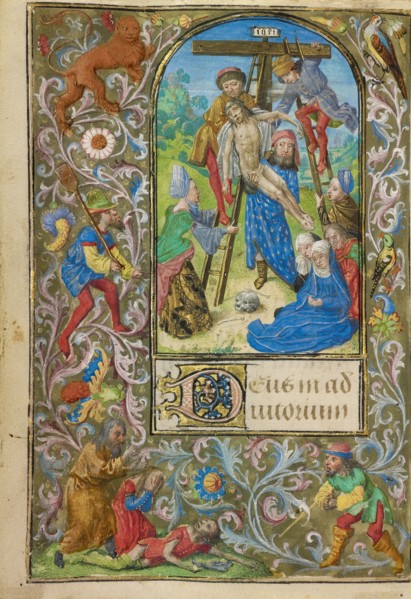 INRI
Deus in ad
iutorium